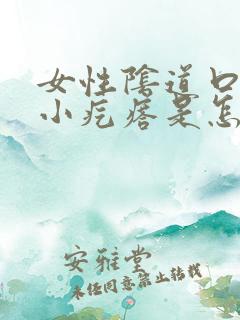 女性陰道口
小疙瘩是怎
安雅堂
未经同意禁止转载